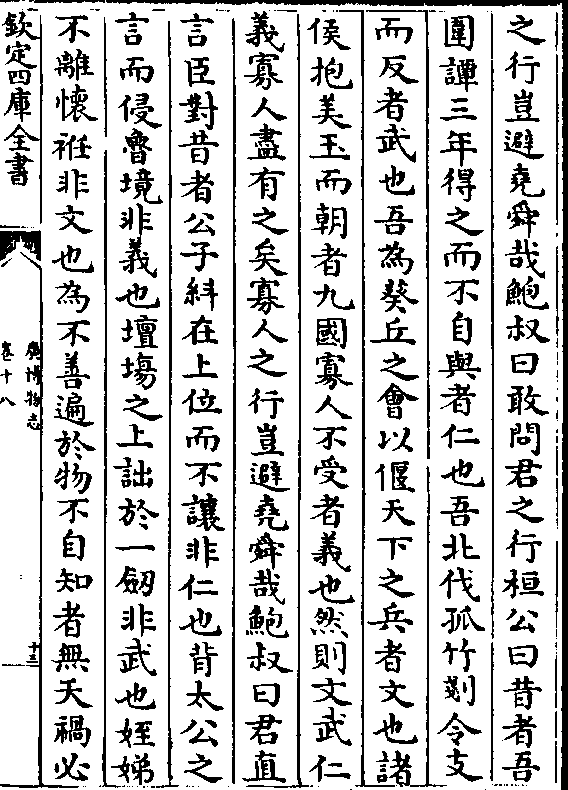 之行豈避堯舜哉鮑叔曰敢問君之行桓公曰昔者吾
圍譚三年得之而不自與者仁也吾北伐孤竹剗令支
而反者武也吾為葵丘之會以偃天下之兵者文也諸
侯抱美玉而朝者九國寡人不受者義也然則文武仁
義寡人盡有之矣寡人之行豈避堯舜哉鮑叔曰君直
言臣對昔者公子糾在上位而不讓非仁也背太公之
言而侵魯境非義也壇塲之上詘於一劒非武也姪娣
不離懷袵非文也為不善遍於物不自知者無天禍必
欽定四庫全書
廣博物志
卷十八
十三